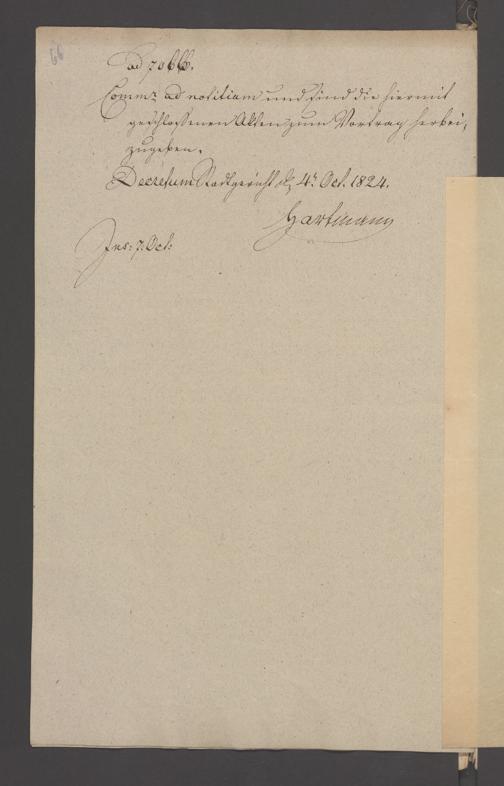 66
ad 7066.
Comm: ad notitiam und sind die hiermit
geschlossenen Akten zum Vortrag herbei,
zugeben.
Decretum Stadtgericht d. 4t Oct. 1824.
Hartmann
Ins: 7. Oct: